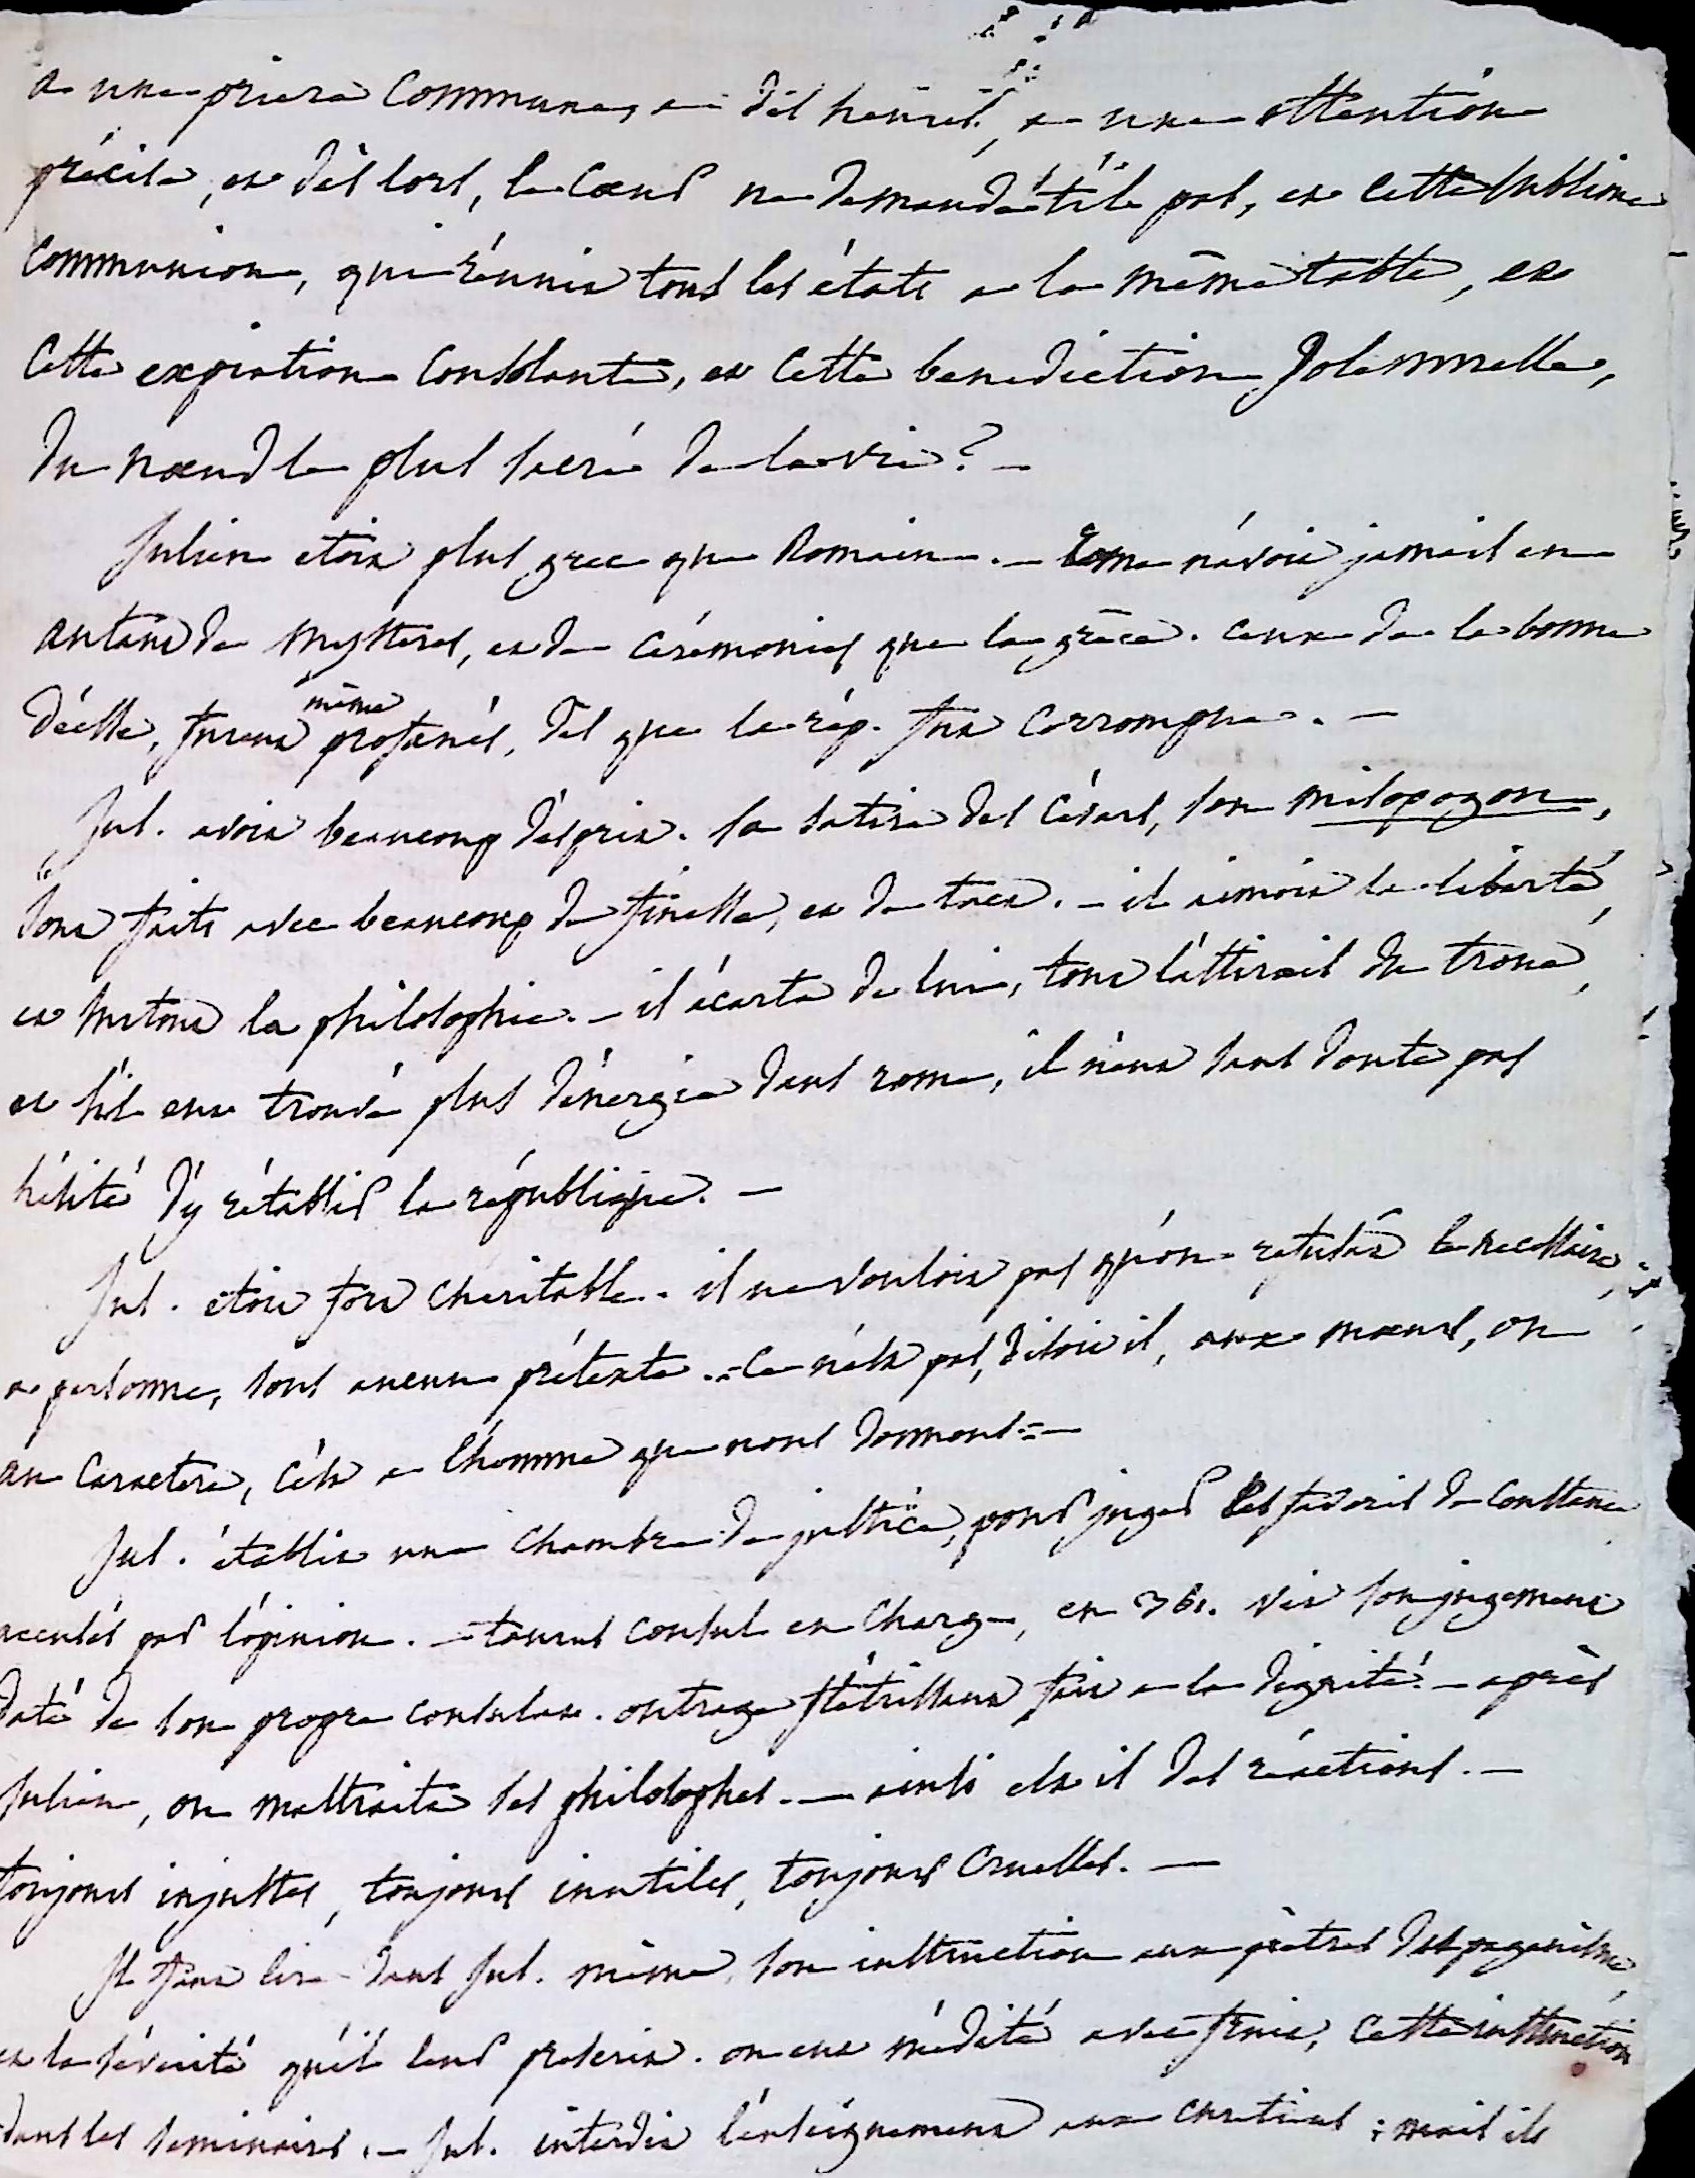 a une priere commune, a des heures, a une attention
précise, et dès lors, le coeur ne demande t'il pas, et cette sublime
communion, qui réunit tous les états a la même table, et
cette expiation consolante, et cette benediction solemnelle,
du noeud le plus sacré de la vie? —
Julien etoit plus grec que Romain. — Rome n'avoit jamais eu
autant de mysteres, et de cérémonies que la grèce. ceux de la bonne
déesse, furent même profanés, dès que la rép. fut corrompue. —
Jul. avoit beaucoup d'esprit. sa satire des Césars, son misopogon,
sont faits avec beaucoup de finesse, et de tact. — il aimoit la liberté,
et surtout la philosophie. — il écarta de lui, tout l'attirail du trone,
et s'il eut trouvé plus d'énergie dans rome, il n'eut sans doute pas
hésité d'y rétablir la république. —
Jul. etoit fort charitable. il ne vouloit pas qu'on refusât le necessaire,
a personne, sous aucun prétexte. = Ce n'est pas, disoit il, aux moeurs, ou
au caractere, c'est a l'homme que nous donnons = —
Jul. établit une chambre de justice, pour juger les favoris de Constance
accusés par l'opinion. — taurus consul en charge, en 361. vit son jugement
daté de son propre consulat. outrage flétrissant fait a la dignité. — après
Julien, on maltraita les philosophes. — ainsi est il des réactions. —
toujours injustes, toujours inutiles, toujours cruelles. —
Il faut lire dans Jul. même, son instruction aux prêtres du paganisme,
et la sévérité qu'il leur prescrit. on eut médité avec fruit, cette instruction
dans les seminaires. — Jul. interdit l'enseignement aux chretiens : mais ils